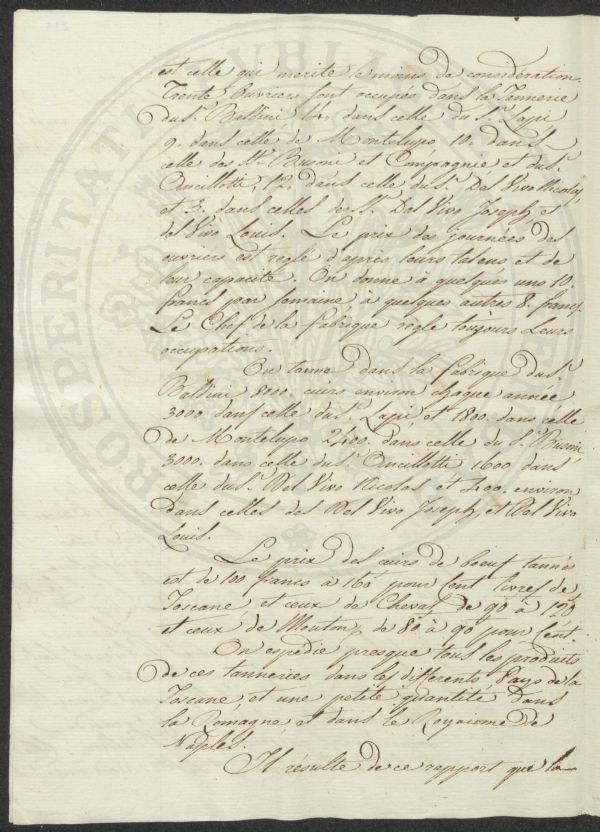 est celle qui merite le moins de considération.
Trente Ouvriers sont occupés dans la Tannerie
du S.r Bellini 14. dans celle du S.r Lapi
9. dans celle de Montelupo, 10. dans
celle des S.rs Busoni et Compagnie et du S.r
Ancillotti, 12. dans celle du S.r Del Vivo Nicolas,
et 3. dans celles des S.rs Del Vivo Joseph, et
del Vivo Louis. Le prix des journées des
ouvriers est réglé d'après leurs talens et de
leur capacité. On donne à quelques uns 10.
francs par semaine à quelques autres 8. francs.
Le Chef de la fabrique règle toujours leurs
occupations.
On tanne dans la fabrique du S.r
Bellini 8000. cuirs environ chaque année
3000. dans celle du S.r Lapi, et 1800. dans celle
de Montelupo 2400. dans celle du S.r Busoni
3000. dans celle du S.r Ancillotti 1600 dans
celle du S.r Del Vivo Nicolas et 400. environ
dans celles des Del Vivo Joseph, et Del Vivo
Louis.
Le prix des cuirs de boeuf tannés
est de 100 francs à 160 pour cent livres de
Toscane et ceux de Cheval de 90 à 120
et ceux de Mouton de 80 à 90 pour Cent.
On expédie presque tous les produits
de ces tanneries dans les differents Pays de la
Toscane, et une petite quantité dans
la Romagne, et dans le Royaume de
Naples.
Il résulte de ce rapport que la